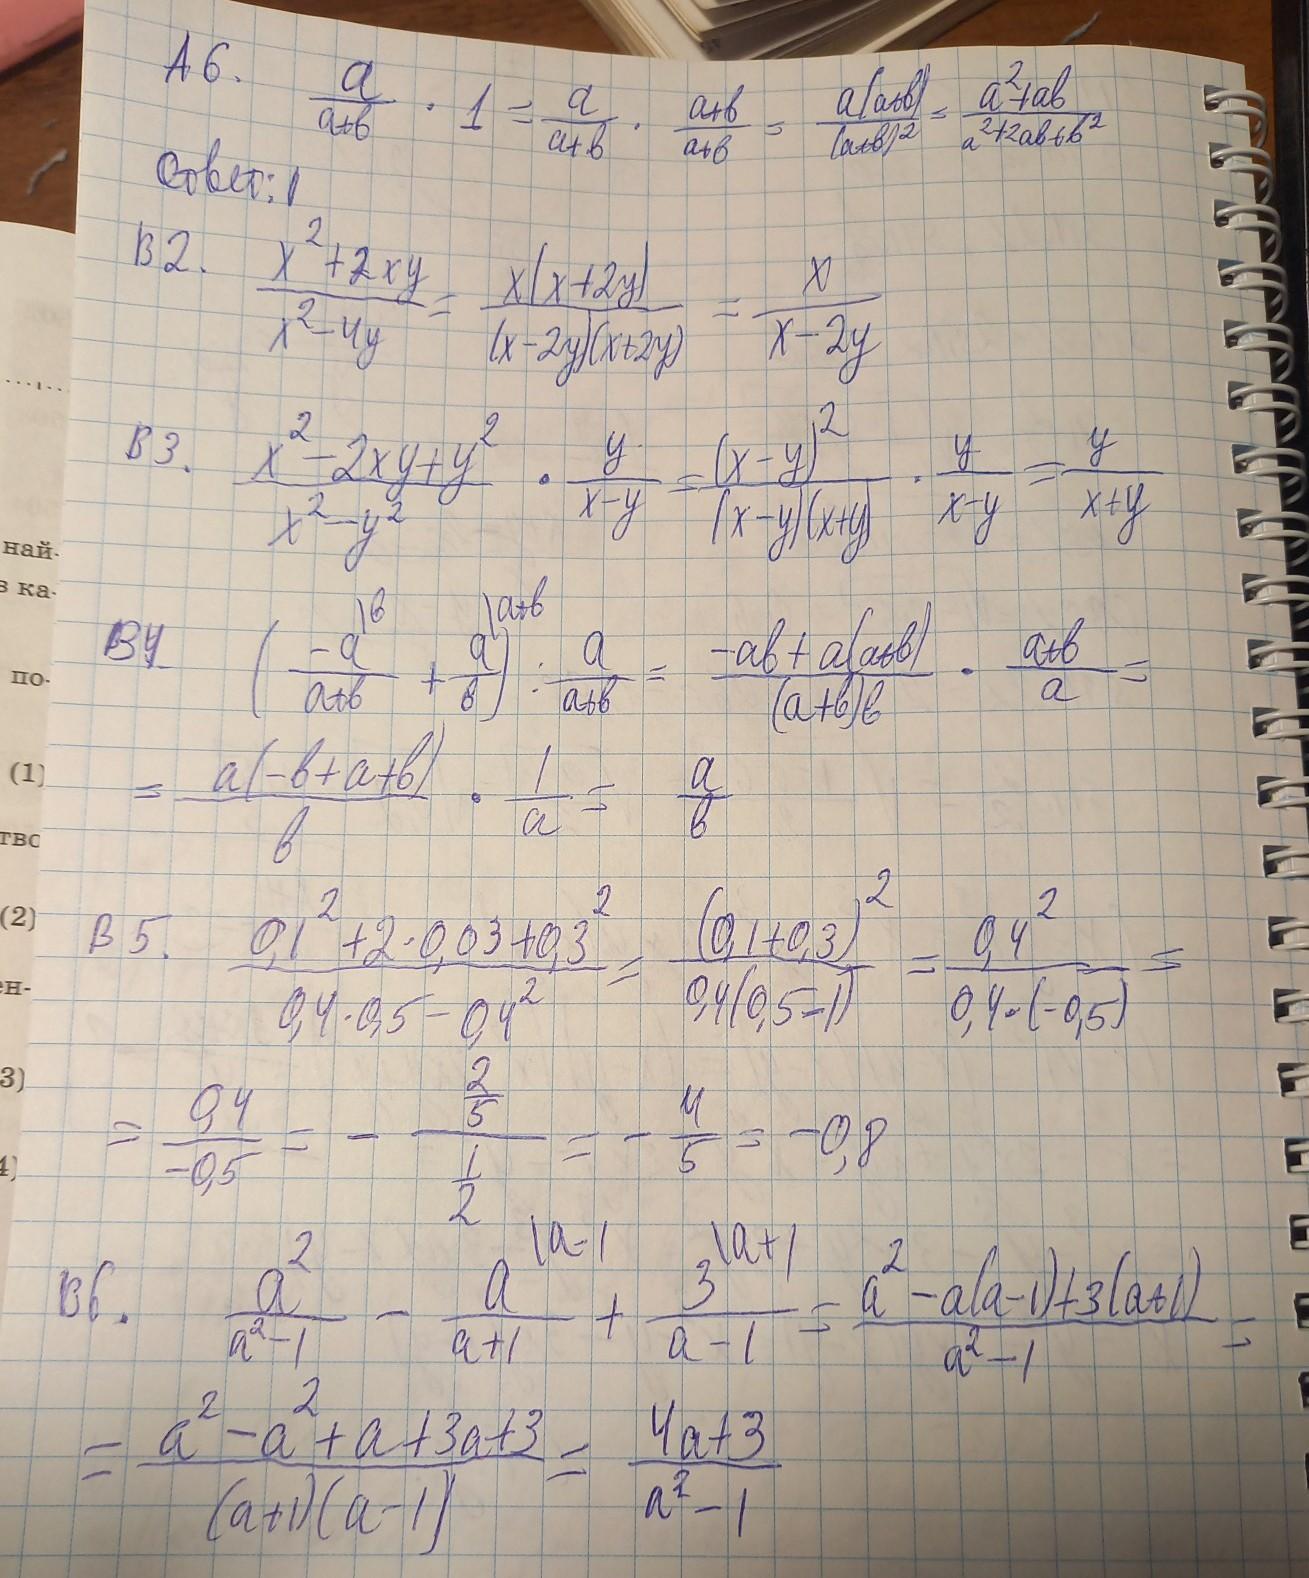 А6. a/(a+b) · 1 = a/(a+b) · (a+b)/(a+b) = a(a+b)/(a+b)² = (a²+ab)/(a²+2ab+b²)
Ответ: 1
В2. (x²+2xy)/(x²-4y) = x(x+2y)/((x-2y)(x+2y)) = x/(x-2y)
В3. (x²-2xy+y²)/(x²-y²) · y/(x-y) = (x-y)²/((x-y)(x+y)) · y/(x-y) = y/(x+y)
В4 (-a\b/(a+b) + a\a+b/b) : a/(a+b) = (-ab+a(a+b))/((a+b)b) · (a+b)/a =
= a(-b+a+b)/b · 1/a = a/b
В5. (0,1²+2·0,03+0,3²)/(0,4·0,5-0,4²) = (0,1+0,3)²/(0,4(0,5-1)) = 0,4²/(0,4·(-0,5)) =
= 0,4/(-0,5) = - (2/5)/(1/2) = - 4/5 = -0,8
В6. a²/(a²-1) - a\a-1/(a+1) + 3\a+1/(a-1) = (a²-a(a-1)+3(a+1))/(a²-1) =
= (a²-a²+a+3a+3)/((a+1)(a-1)) = (4a+3)/(a²-1)
най-
в ка-
по-
(1)
тво
(2)
ен-
3)
4)